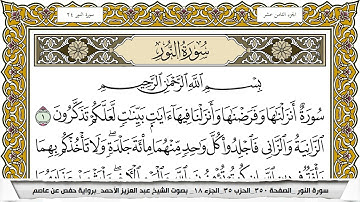 الجزء الثامن عشر
سورة النور ٢٤
سُورَةُ النُّورِ
بِسْمِ اللَّهِ الرَّحْمَٰنِ الرَّحِيمِ
سُورَةٌ أَنزَلْنَٰهَا وَفَرَضْنَٰهَا وَأَنزَلْنَا فِيهَآ ءَايَٰتٍۭ بَيِّنَٰتٍ لَّعَلَّكُمْ تَذَكَّرُونَ ١
الزَّانِيَةُ وَالزَّانِي فَاجْلِدُوا۟ كُلَّ وَٰحِدٍ مِّنْهُمَا مِا۟ئَةَ جَلْدَةٍ وَلَا تَأْخُذْكُم بِهِمَا
سورة النور _الصفحة ٣٥٠_الحزب ٣٥_الجزء ١٨_ بصوت الشيخ عبد العزيز الأحمد_برواية حفص عن عاصم